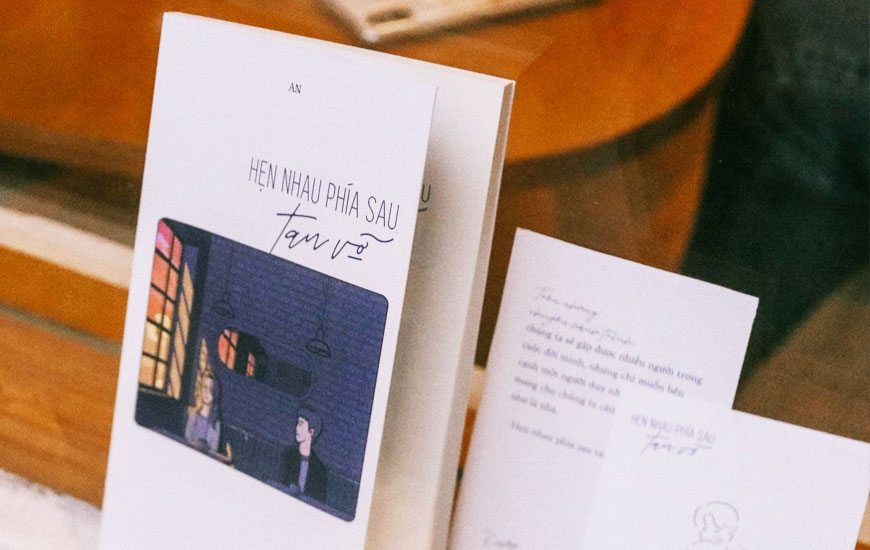 AN
HẸN NHAU PHÍA SAU
tan vỡ
U
Trên những
chuyến hành trình
chúng ta sẽ gặp được nhiều người trong
cuộc đời mình, nhưng chỉ muốn bên
cạnh một người duy nh
mang cho chúng ta cảm
như là nhà.
Hẹn nhau phía sau ta
HẸN NHAU PHÍA SAU
tan vỡ